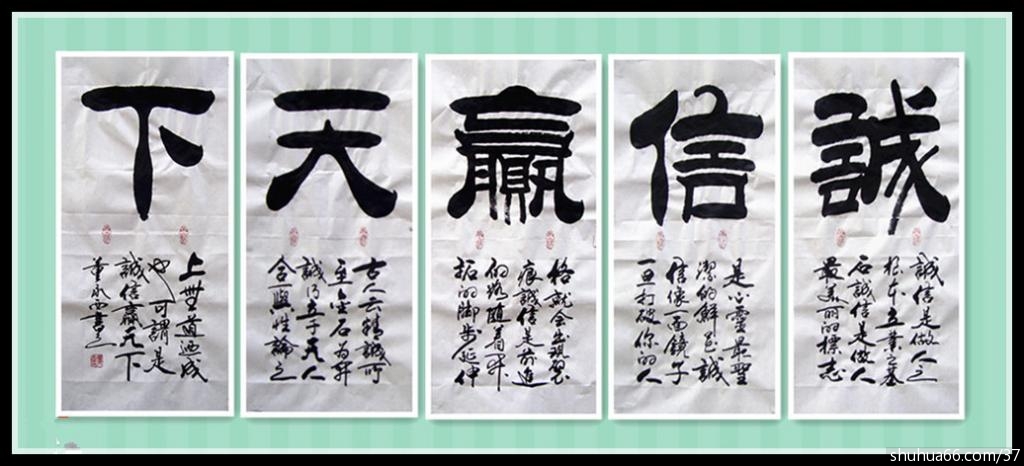 誠
誠信是做人之
根本立業之基
石誠信是做人
最美丽的標志
信
是心靈最聖
潔的鮮花誠
信像一面鏡子
一旦打破你的人
贏
格就会出現裂
痕誠信是前進
的路随着开
拓的脚步延伸
天
古人云精誠所
至金石为开
誠乃立于天人
合一與性論之
下
上無道迺成
也可謂是
誠信贏天下
書之
shuhua66.com/37